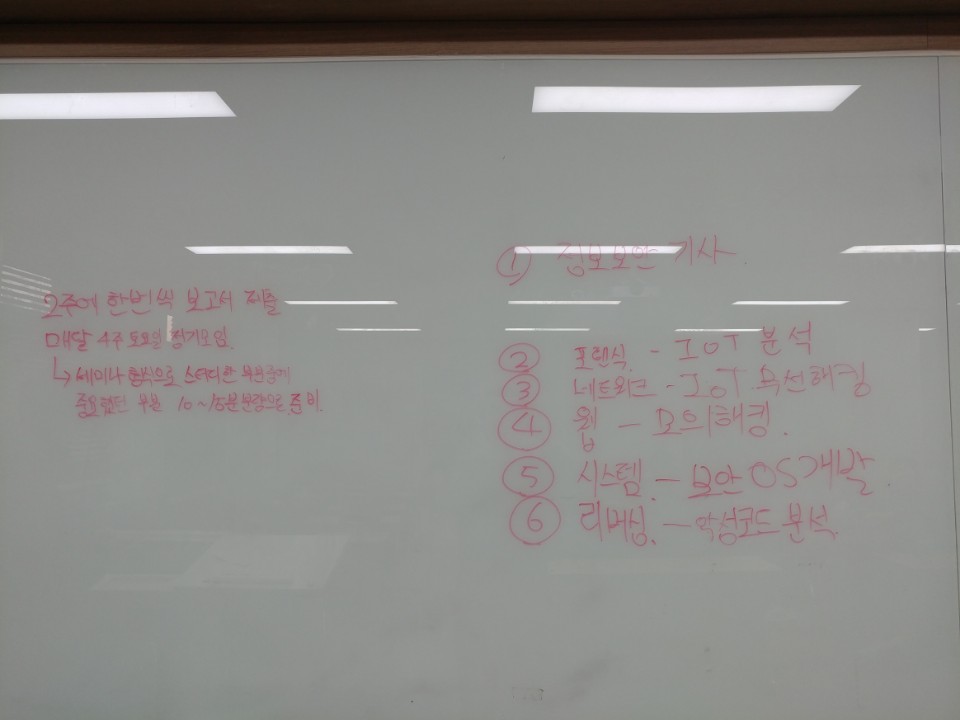 2주에 한번씩 보고서 제출
매달 4주 토요일 정기모임.
↳ 세미나 형식으로 스터디한 부분중에
중요했던 부분 10~15분분량으로 준비.
① 정보보안 기사.
② 포렌식 - IoT 분석
③ 네트워크 - IoT 무선해킹
④ 웹 - 모의해킹.
⑤ 시스템. - 보안 OS 개발.
⑥ 리버싱. - 악성코드 분석.